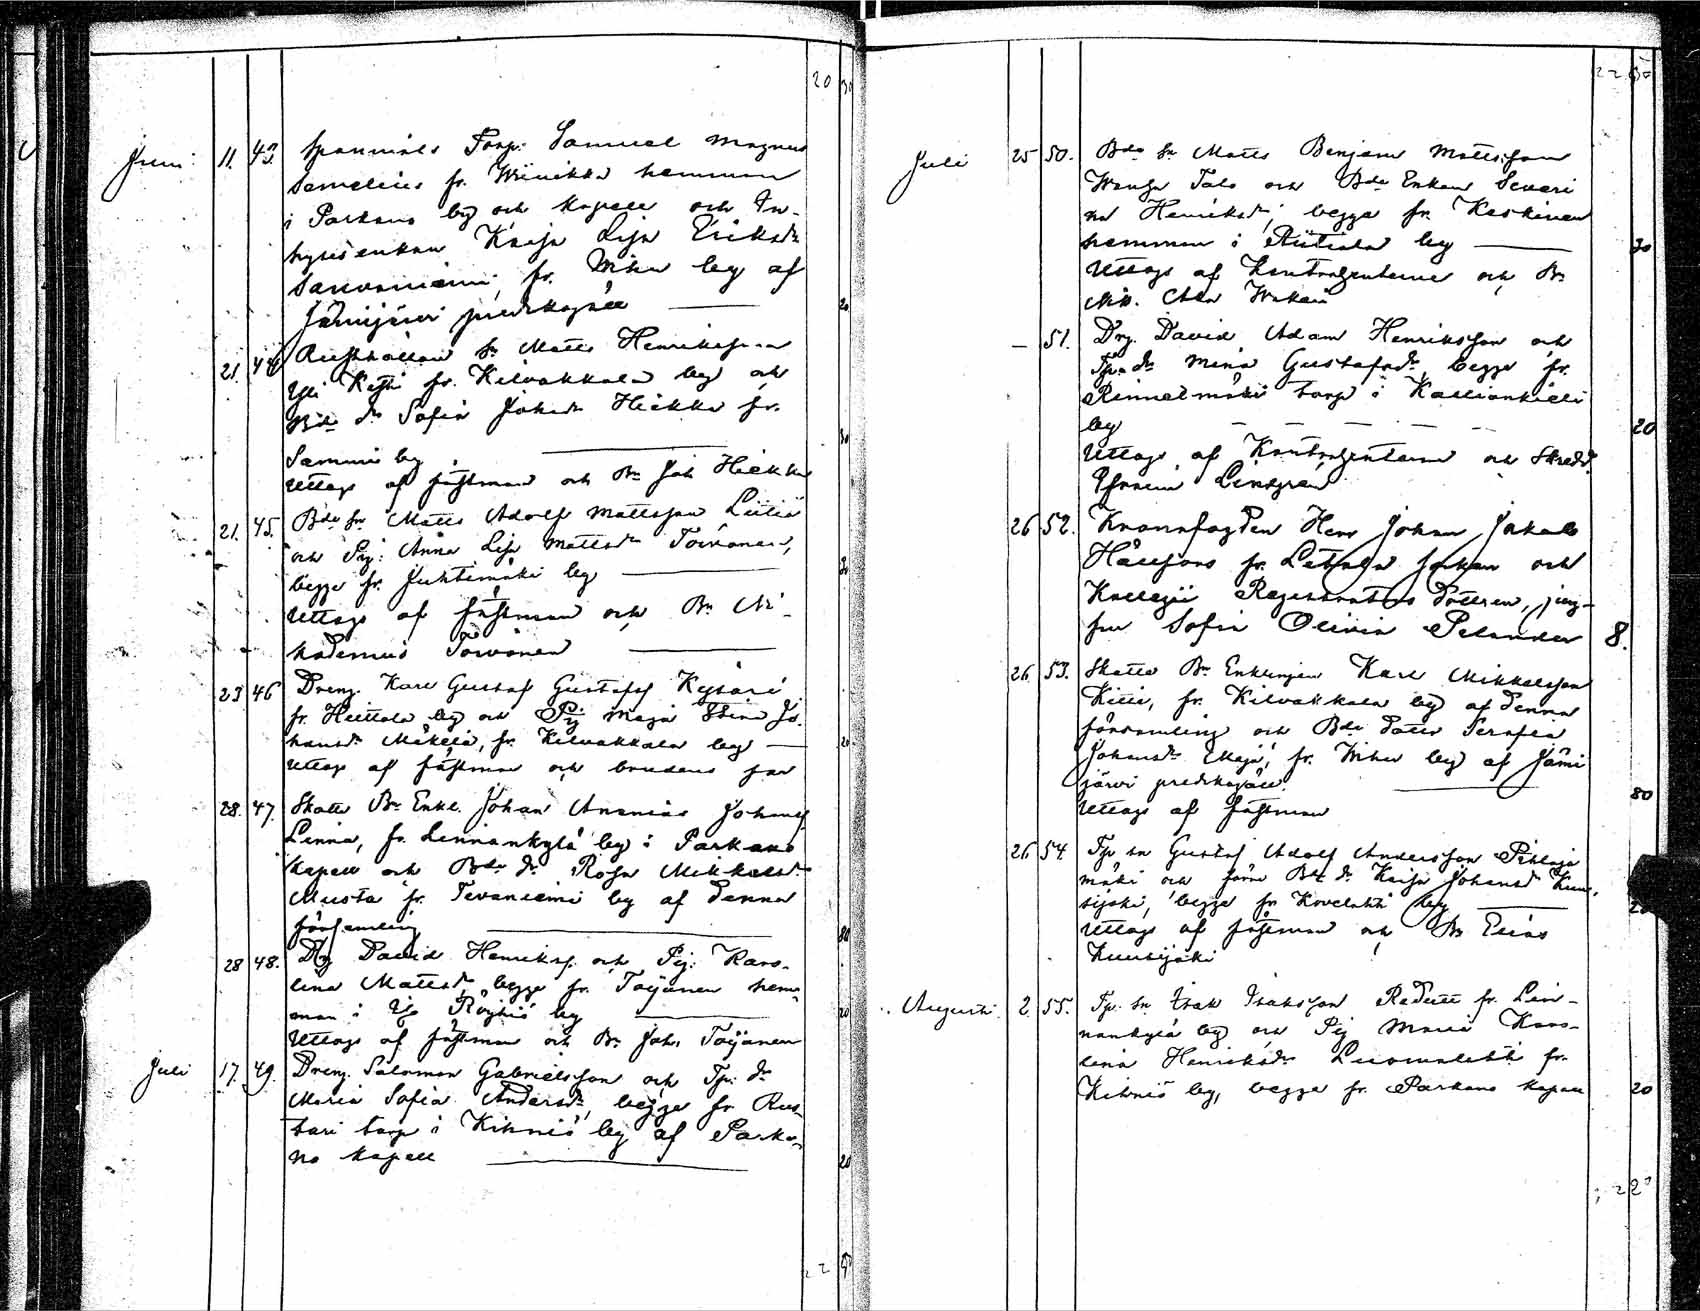 20 30
Juni 11. 43. Spanmåls Torp. Samuel Magnus
Samelius fr. Wiinikka hemman
i Parkano by och Kapell och In-
hysesenkan Kaisa Lisa Eriksdr
Sarvaniemi, fr. Wihu by af
Jämijärvi predikogäll 20
21. 44. Rusthållare sn Matts Henriksson
Yli Kytti fr. Kilvakkala by och
Bde dr Sofia Johsdr Heikka fr.
Sammi by 30
Uttogs af fästman och Bn Joh Heikka
21. 45. Bde sn Matts Adolf Mattsson Leiliä
och Pig. Anna Lisa Mattsdr Toivonen,
begge fr. Juhtimäki by 20
Uttogs af fästman och Bn Ni-
kodemus Toivonen
23 46 Dreng. Karl Gustaf Gustafss Kysäri
fr. Heittola by och Pig Maja Stina Jo-
hansdr Mäkelä, fr. Kilvakkala by 20.
Uttogs af fästman och brudens far
28. 47. Skatte Bn Enkl. Johan Ananias Johanss
Linna, fr. Linnankylä by i Parkano
Kapell och Bde dr Rosa Mikkelsdr
Musta fr. Tevaniemi by af denna
församling 80
28 48. Dg David Henrikss. och Pig. Karo-
lina Mattsdr begge fr. Töijänen hem-
man i Röyhiö by 20
Uttogs af fästman och Bn Joh. Töijänen
Juli 17. 49. Dreng. Salomon Gabrielsson och Tp: dr
Maria Sofia Andersdr, begge fr. Rus-
tari torp i Kihniö by af Parka-
no kapell 20
22 50
Juli 25 50. Bde sn Matts Benjam Mattsson
Wanha Talo och Bde Enkan Severi
na Henriksdr, begge fr. Keskinen
hemman i Riitiala by 30
Uttogs af Kontrahenterne och Bn
51. Drg. David Adam Henriksson och
Tp. dr Mina Gustafsdr begge fr.
Rinnelmäki torp i Kallionkieli
by 20
Uttogs af Kontrahenterna och Skredd.
Efraim Lindgren
26 52. Kronofogden Herr Johan Jakob
Hållfors fr. Letsola socken och
Kollegii Registrators dottren, jung-
fru Sofia Olivia Pelander 8.
26 53. Skatte Bn Enklingen Karl Mikkelsson
Kitti, fr. Kilvakkala by af denna
församling och Bde dotter Serafia
Johansdr Maja, fr. Wihu by af Jämi
järvi predikogäll. 80
Uttogs af fästman
26 54 Tp sn Gustaf Adolf Andersson Pihlaja
mäki och förra Bde dr Kaisa Johansdr Kuu-
sijoki, begge fr Kovelahti by 20
Uttogs af fästman och Bn Elias
Kuusijoki
Augusti 2 55. Tp. sn Isak Isaksson Redutt fr. Lin-
nankylä by och Pig Maria Karo-
lina Henriksdr Luomalahti fr.
Kihniö by, begge fr. Parkano kapell 20